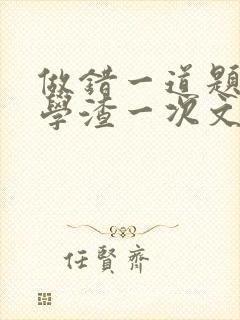 做錯一道題
學渣一次文
任賢齊